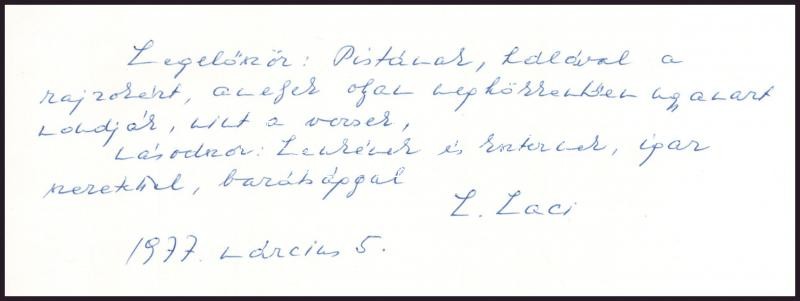 Legelőször: Pistának, hálával a
rajzokért, amelyek olyan megkönnyebbülten ugyanazt
mondják, mint a versek,
másodszor: Lenkének és Eszternek, igaz
szeretettel, barátsággal
L. Laci
1977. március 5.